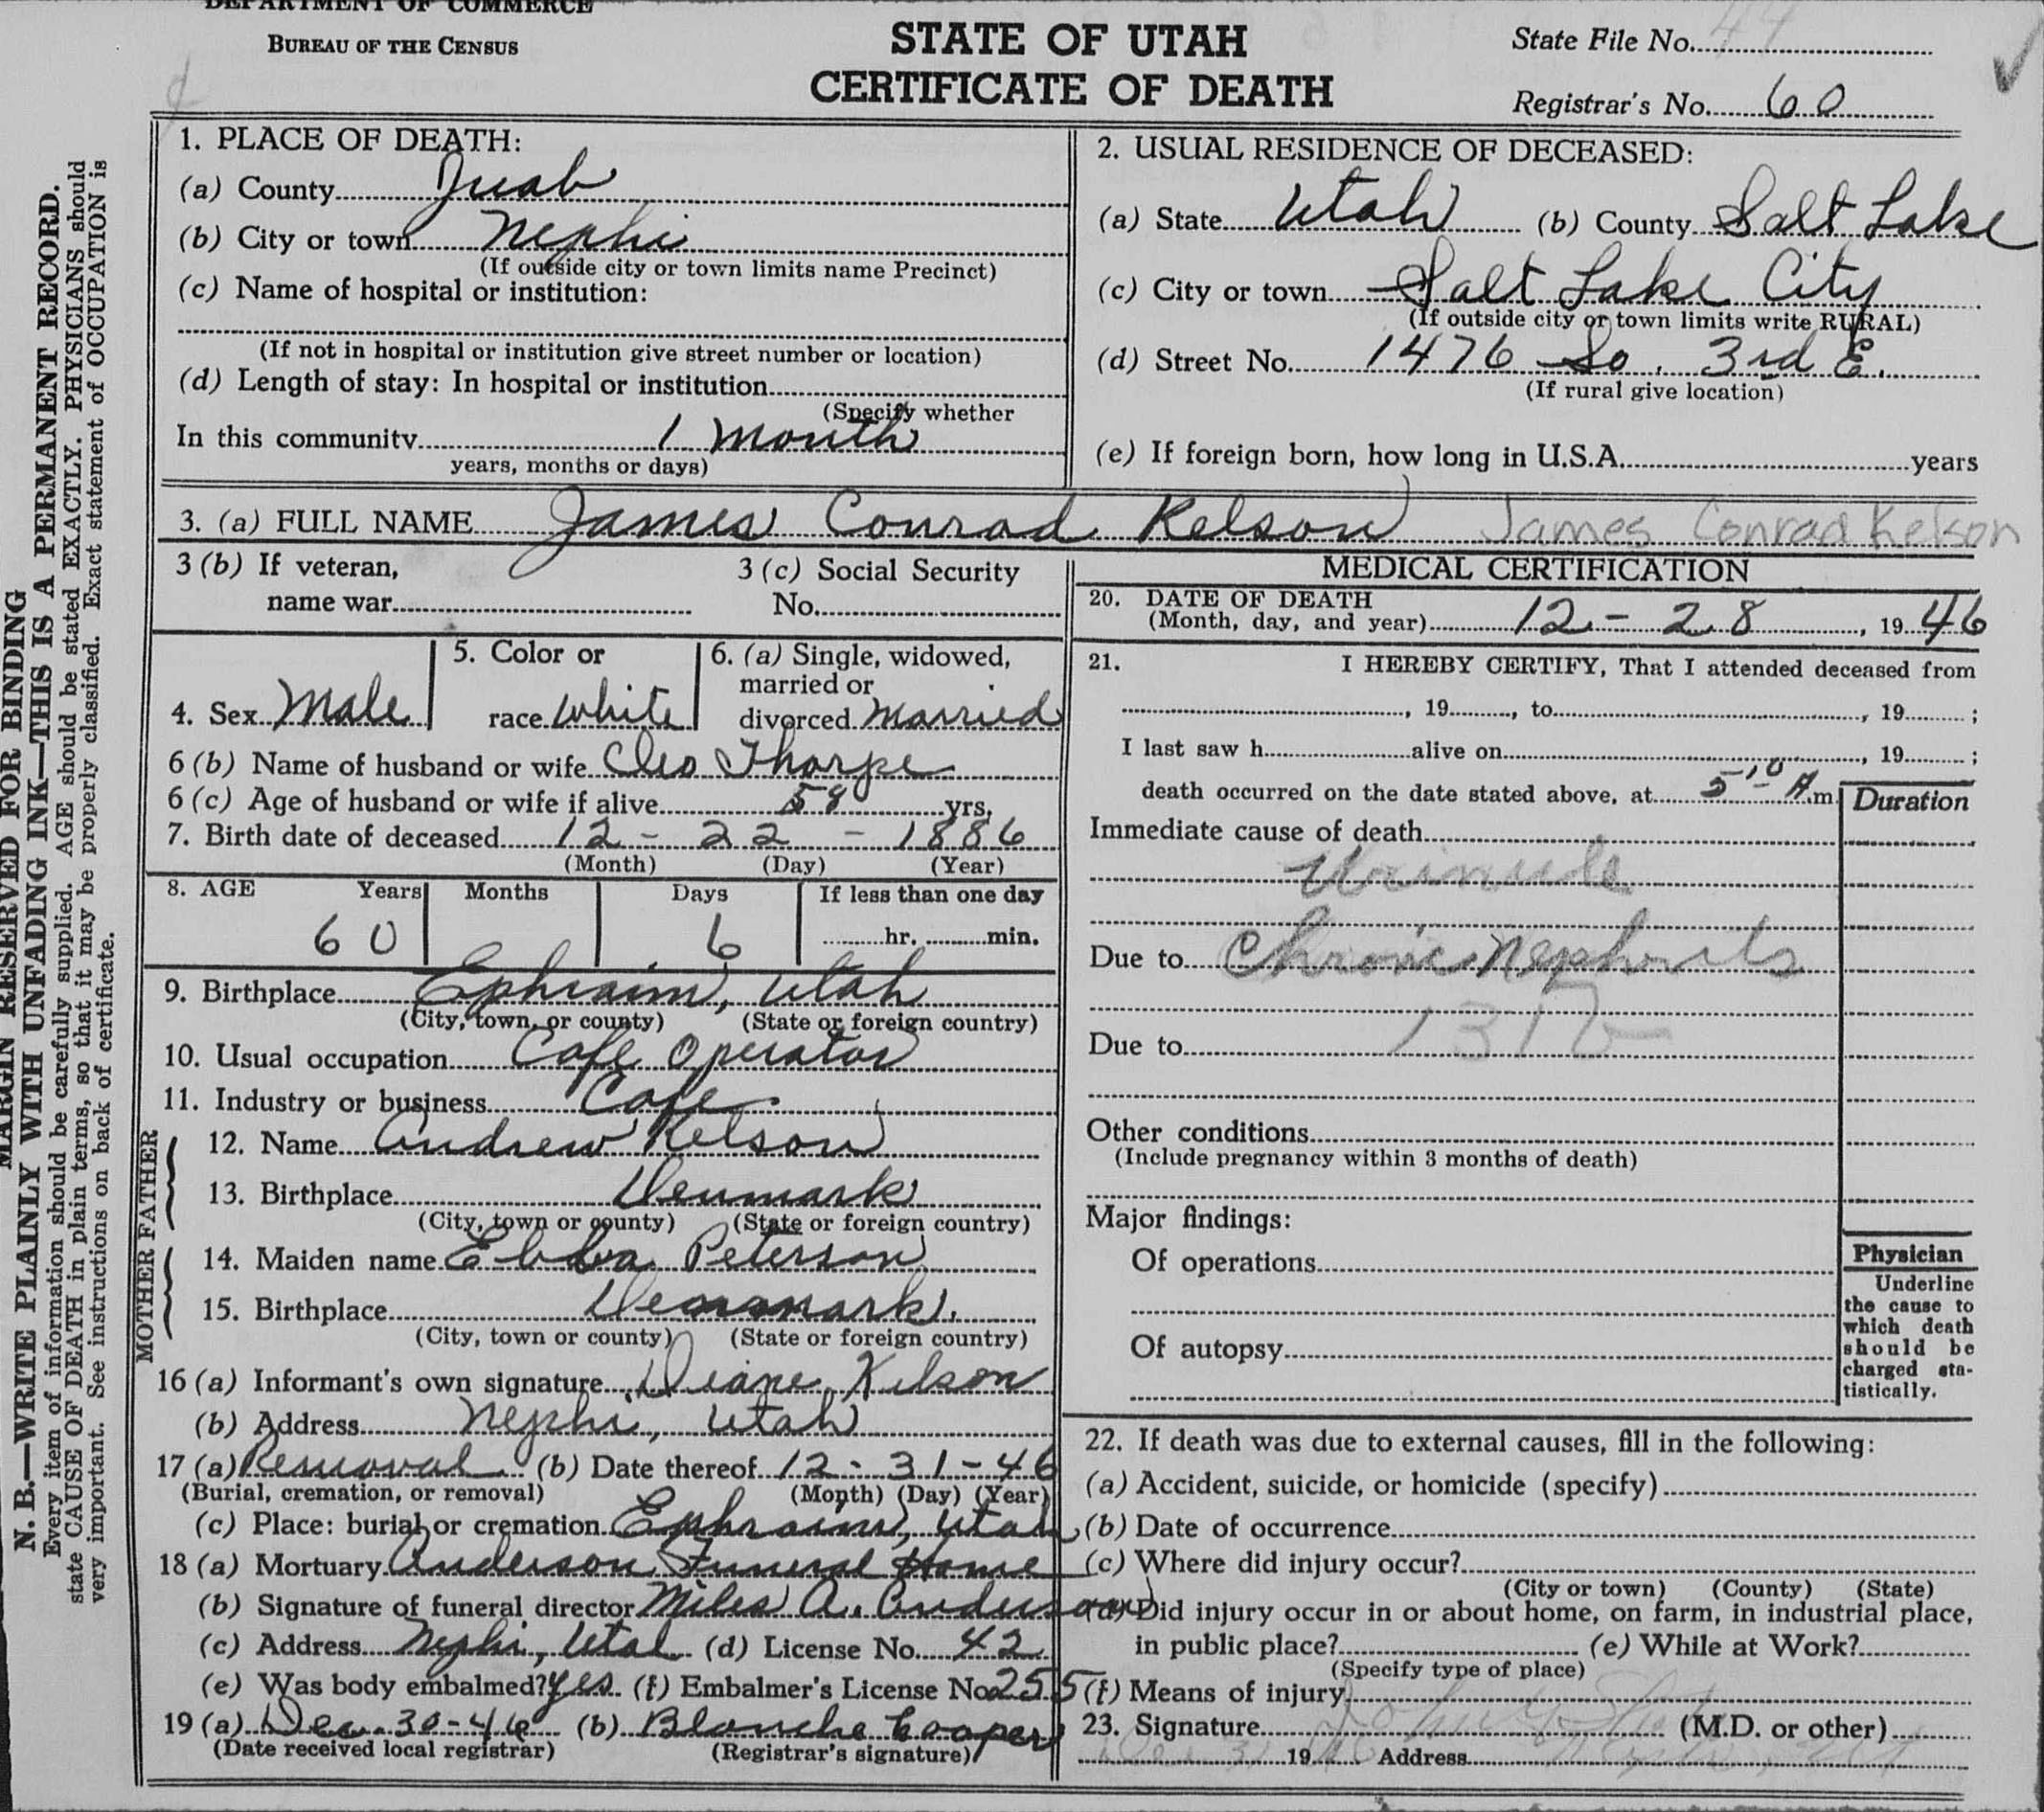 DEPARTMENT OF COMMERCE
BUREAU OF THE CENSUS
STATE OF UTAH
CERTIFICATE OF DEATH
State File No. 44
Registrar's No. 60
MARGIN RESERVED FOR BINDING
N. B.—WRITE PLAINLY WITH UNFADING INK—THIS IS A PERMANENT RECORD.
Every item of information should be carefully supplied. AGE should be stated EXACTLY. PHYSICIANS should
state CAUSE OF DEATH in plain terms, so that it may be properly classified. Exact statement of OCCUPATION is
very important. See instructions on back of certificate.
1. PLACE OF DEATH:
(a) County Juab
(b) City or town Nephi
(If outside city or town limits name Precinct)
(c) Name of hospital or institution:
(If not in hospital or institution give street number or location)
(d) Length of stay: In hospital or institution
(Specify whether
In this community 1 month
years, months or days)
2. USUAL RESIDENCE OF DECEASED:
(a) State Utah (b) County Salt Lake
(c) City or town Salt Lake City
(If outside city or town limits write RURAL)
(d) Street No. 1476 So. 3rd E.
(If rural give location)
(e) If foreign born, how long in U.S.A. years
3. (a) FULL NAME James Conrad Kelson James Conrad Kelson
3 (b) If veteran,
name war
3 (c) Social Security
No.
4. Sex Male
5. Color or
race White
6. (a) Single, widowed,
married or
divorced Married
6 (b) Name of husband or wife Cleo Thorpe
6 (c) Age of husband or wife if alive 58 yrs.
7. Birth date of deceased 12 - 22 - 1886
(Month) (Day) (Year)
8. AGE Years Months Days If less than one day
60 6 hr. min.
9. Birthplace Ephraim, Utah
(City, town, or county) (State or foreign country)
10. Usual occupation Cafe Operator
11. Industry or business Cafe
FATHER
12. Name Andrew Kelson
13. Birthplace Denmark
(City, town or county) (State or foreign country)
MOTHER
14. Maiden name Ebba Peterson
15. Birthplace Denmark.
(City, town or county) (State or foreign country)
16 (a) Informant's own signature Diane Kelson
(b) Address Nephi, Utah
17 (a) Removal (b) Date thereof 12-31-46
(Burial, cremation, or removal) (Month) (Day) (Year)
(c) Place: burial or cremation Ephraim, Utah
18 (a) Mortuary Anderson Funeral Home
(b) Signature of funeral director Miles A. Anderson
(c) Address Nephi, Utah (d) License No. 42
(e) Was body embalmed? Yes (f) Embalmer's License No. 255
19 (a) Dec. 30-46 (b) Blanche Cooper
(Date received local registrar) (Registrar's signature)
MEDICAL CERTIFICATION
20. DATE OF DEATH
(Month, day, and year) 12-28, 1946
21. I HEREBY CERTIFY, That I attended deceased from
, 19 , to , 19 ;
I last saw h alive on , 19 ;
death occurred on the date stated above, at 5:10 A m.
Duration
Immediate cause of death
Due to Chronic Nephritis
131b
Due to
Other conditions
(Include pregnancy within 3 months of death)
Major findings:
Of operations
Of autopsy
Physician
Underline
the cause to
which death
should be
charged sta-
tistically.
22. If death was due to external causes, fill in the following:
(a) Accident, suicide, or homicide (specify)
(b) Date of occurrence
(c) Where did injury occur?
(City or town) (County) (State)
(d) Did injury occur in or about home, on farm, in industrial place,
in public place? (e) While at Work?
(Specify type of place)
(f) Means of injury
23. Signature (M.D. or other)
19 Address